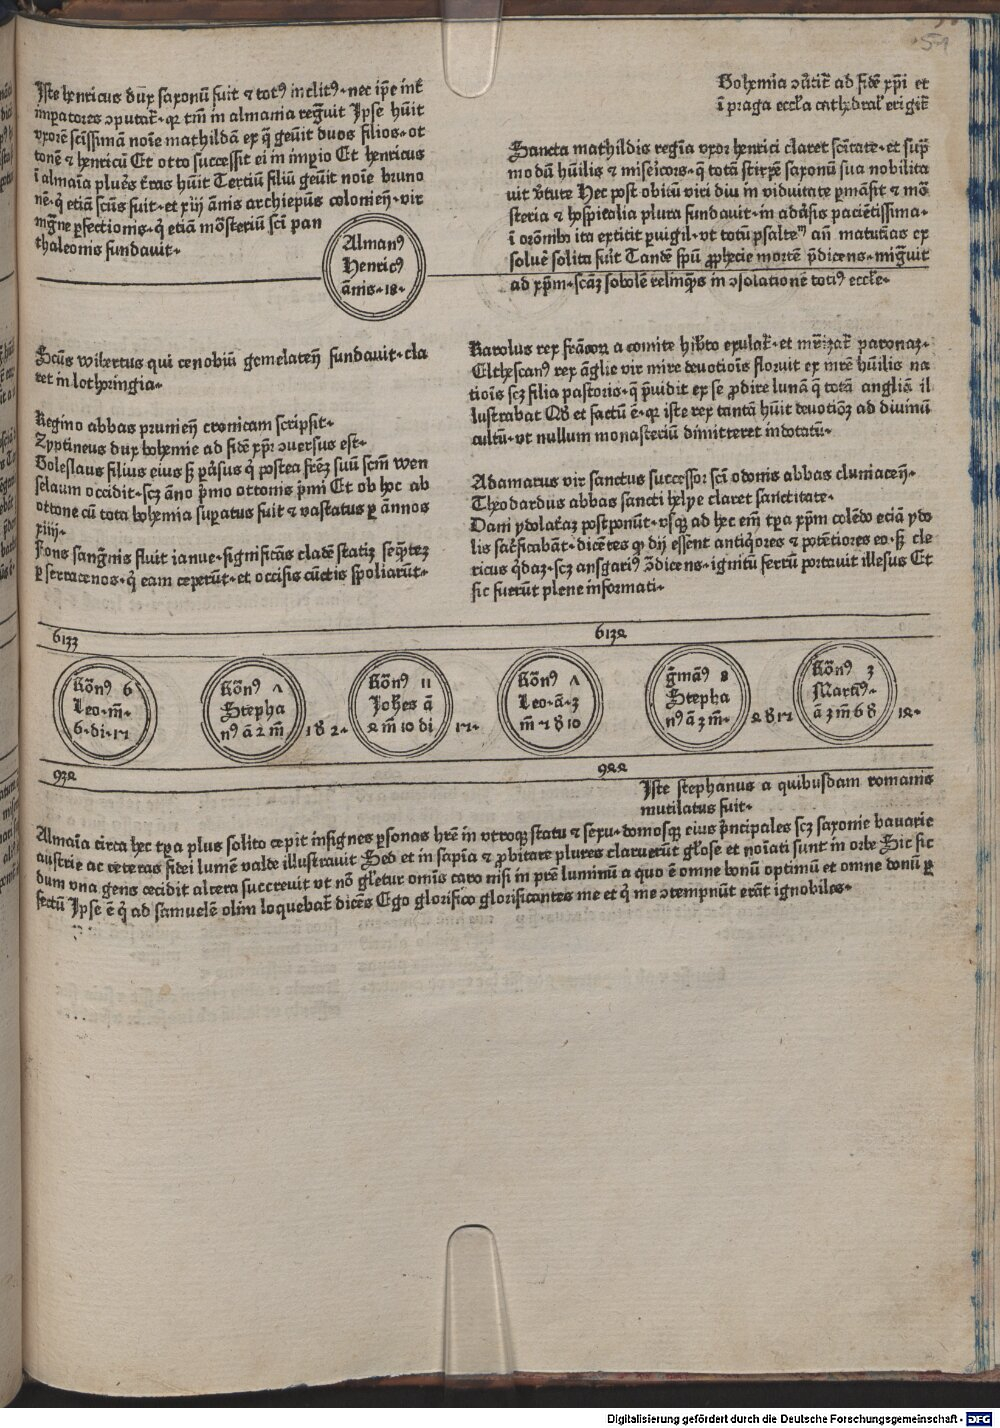 51
Iste henricus dux saxonū fuit ⁊ totꝰ inclitꝰ · nec ip̄e int̄
impatores ↄputat᷑ · qr tm̄ in almania regn̄uit Ipse hūit
vxorē scīssimā noīe mathildā ex q̄ gen̄uit duos filios · ot
tonē ⁊ henricū Et otto successit ei in impio Et henricus
ī almaīa plures t̄ras hūit Terciū filiū genūit noīe bruno
nē · q̇ etiā sc̄us fuit · et xiij ānis archiepūs colonieñ · vir
mgn̄e ꝑfectionis · q̇ etiā mōsteriū sc̄i pan
thaleonis fundauit ·
Almanꝰ
Henricꝰ
ānis · 18 ·
Bohemia ↄūtit᷑ ad fidē xp̄i et
ī praga eccl̄a cathedral᷑ erigit᷑
Sancta mathildis regīa vxor henrici claret scītate · et sup̄
mo dū hūilis ⁊ miseīcors · q̄ totā stirpē saxonū sua nobilita
uit v̄tute Hec post obitū viri diu in viduitate ꝑmāsit ⁊ mō
steria ⁊ hospitalia plura fundauit · in aduīsis paciētissima ·
ī orōnibꝰ ita extitit ꝑuigil · vt totū psalteriū añ matutīas ex
soluē solita fuit Tandē spū ꝓphecie mortē p̄dicens · migrauit
ad xp̄m · scāz sobolē relinquēs in ↄsolationē totiꝰ eccl̄e ·
Sc̄us wibertus qui cenobiū gemelateñ fundauit · cla
ret in lothoringia ·
Regino abbas prunieñ cronicam scripsit ·
Zyptineus dux bohemie ad fidē xp̄i ↄuersus est ·
Boleslaus filius eius sꝫ ꝑuīsus q̇ postea fr̄ez suū scm̄ wen
selaum occidit · scꝫ āno p̄mo ottonis p̄mi Et ob hoc ab
ottone cū tota bohemia supatus fuit ⁊ vastatus ꝑ ānnos
xiiij ·
Fons sanguīnis fluit ianue · significās cladē statiz sequētez
ꝑ serracenos · q̇ eam ceperūt · et occisis cūctis spoliarūt ·
Karolus rex frācoꝝ a comite hibto exulat᷑ · et mr̄izat᷑ paronaz ·
Elthescanꝰ rex āglie vir mire deuotiōis floruit ex mrē hūilis na
tiōis scꝫ filia pastoris · q̄ p̄uidit ex se ꝓdire lunā q̄ totā angliā il
lustrabat Qd et factū ē · qr iste rex tantā hūit deuotiōz ad diuinū
cultū · vt nullum monasteriū dimitteret indotatū ·
Adamarus vir sanctus successor sc̄i odonis abbas cluniaceñ ·
Theodardus abbas sancti helye claret sanctitate ·
Dani ydolat᷑az postponūt · vsqꝫ ad hec em̄ tpa xp̄m colēdo eciā ydo
lis sac̄ficabāt · dicētes qꝫ dij essent antiqores ⁊ potētiores eo · sꝫ cle
ricus q̇daz · scꝫ ansgariꝰ ↄ̄dicens · ignitū ferrū portauit illesus Et
sic fuerūt plene informati ·
6133 6132
Rōnꝰ 6
Leo · m̄ ·
6 · di · 17
Rōnꝰ ʌ
Stepha
nꝰ ā 2 m̄ ·
1 8 2 ·
Rōnꝰ 11
Johēs ā
2 m̄ 10 di
17 ·
Rōnꝰ ʌ
Leo · ā · 3
m̄ · 7 8 10
g̈mānꝰ 8
Stepha
nꝰ ā 3 m̄ ·
2 8 17
Rōnꝰ 3
Martīꝰ ·
ā 3 m̄ 6 8
12 ·
932 922
Iste stephanus a quibusdam romanis
mutilatus fuit ·
Almaīa circa hec tpa plus solito cepit insignes ꝑsonas hrē in vtroqꝫ statu ⁊ sexu · domosqꝫ eius p̄ncipales scꝫ saxonie bauarie
austrie ac ceteras fidei lumē valde illustrauit Sed et in sapīa ⁊ ꝓbitate plures claruerūt gl̄ose et noīati sunt in orbe Sic sic
dum vna gens cecidit altera succreuit vt nō gl̄etur omīs caro nisi in pr̄e luminū a quo ē omne bonū optimū et omne donū ꝑ
fectū Ipse ē q̇ ad samuelē olim loquebat᷑ dicēs Ego glorifico glorificantes me et q̇ me ↄtempnūt erūt ignobiles ·
Digitalisierung gefördert durch die Deutsche Forschungsgemeinschaft - DFG